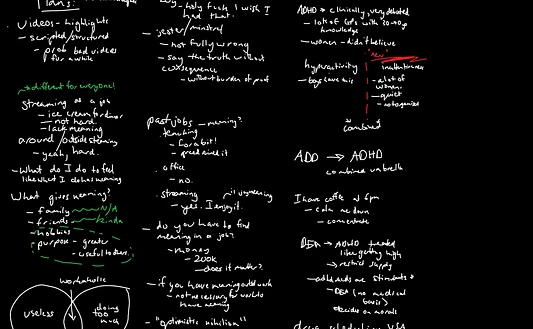 Plans:
videos - highlights
- scripted/structured
- prob bad videos
for a while
→ different for everyone!
streaming as a job
- ice cream for dinner
- not hard.
- lack meaning
around/outside streaming
- yeah, hard.
- What do I do to feel
like what I do has meaning
What gives meaning?
- family N/A
- friends kinda
- hobbies
purpose - greater
- useful to others
workaholic
useless
doing
too
much
holy fuck I wish I
had that.
- jester/minstrel
- not fully wrong
- say the truth without
consequence
- without burden of proof
past jobs - meaning?
teaching
- for a bit!
office
- no.
streaming
- yes. I enjoy it.
- do you have to find
meaning in a job?
- money
- 200k
- does it matter?
- if you have meaning outside work
- not necessary for work to
have meaning
- "optimistic nihilism"
ADHD → clinically, very debated
- lot of GPs with 20-40y
knowledge
- women - didn't believe
"new"
hyperactivity
- boys have this
inattentiveness
- a lot of
women
- quiet
combined
ADD → ADHD
combined umbrella
I have coffee at 6pm
- calm me down
- concentrate
DEA → ADHD treated
like getting high
→ restrict supply
- adhd meds are stimulants
- DEA (no medical
basis)
decide on morals
drug scheduling USA